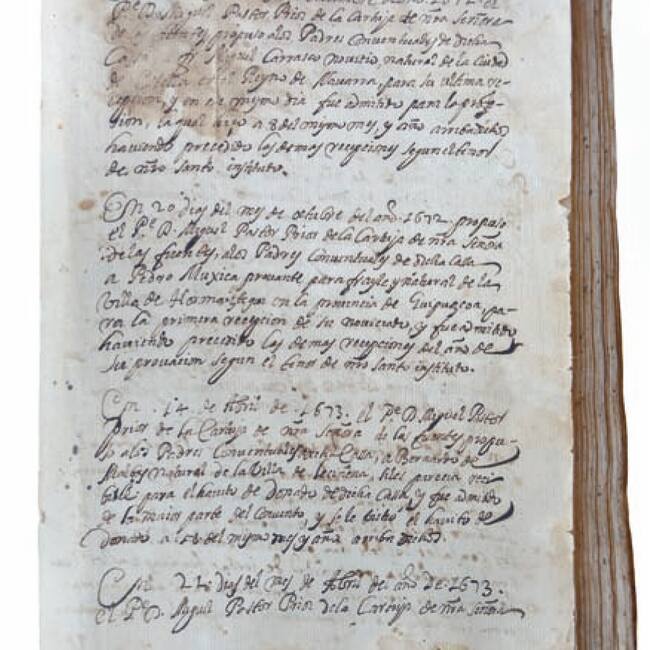 Pe. D. Miguel Pastor Prior de la Cartuja de nra Señora
propuso a los Padres Conventuales de dicha
Casa Miguel Carrasco novicio natural de la ciudad
de en el Reyno de Navarra para su ultima re-
cepcion, y en el mismo dia fue admitido para la profe-
sion, la qual hizo a 8 del mismo mes, y año arriba dicho
haviendo precedido las demas recepciones segun el tenor
de nro santo instituto.
En 20 dias del mes de octubre del año 1672 propuso
el Pe. D. Miguel Pastor Prior de la Cartuja de nra Señora
de las fuentes, a los Padres Conventuales de dicha Casa
a Pedro Muxica provante para frayle y natural de la
Villa de en la provincia de Guipuzcoa, pa-
ra la primera recepcion de su noviciado, y fue admitido
haviendo precedido las demas recepciones del año de
su provacion segun el tenor de nro santo instituto.
En 14 de Abril de 1673. el Pe. D. Miguel Pastor
prior de la Cartuja de nra Señora de las fuentes propu-
so a los Padres Conventuales dicha Casa, a Bernardo de
natural de la Villa de Leciñena, si les parecia reci-
bille para el havito de Donado de dicha Casa, y fue admitido
de la maior parte del Convento, y se le el havito de
Donado a 18 del mismo mes y año arriba dichos.
En 22 dias del mes de Abril del año de 1673.
el Pe. D. Miguel Pastor Prior de la Cartuja de nra Señora